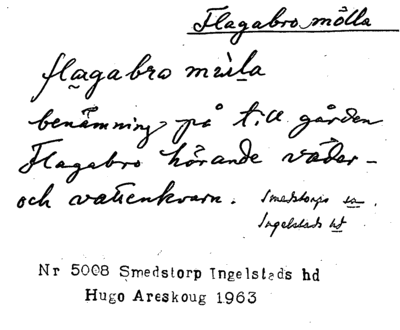 Flagabro mölla
flagabro müla
benämning på till gården
Flagabro hörande väder-
och vattenkvarn. Smedstorps sn.
Ingelstads hd
Nr 5008 Smedstorp Ingelstads hd
Hugo Areskoug 1963